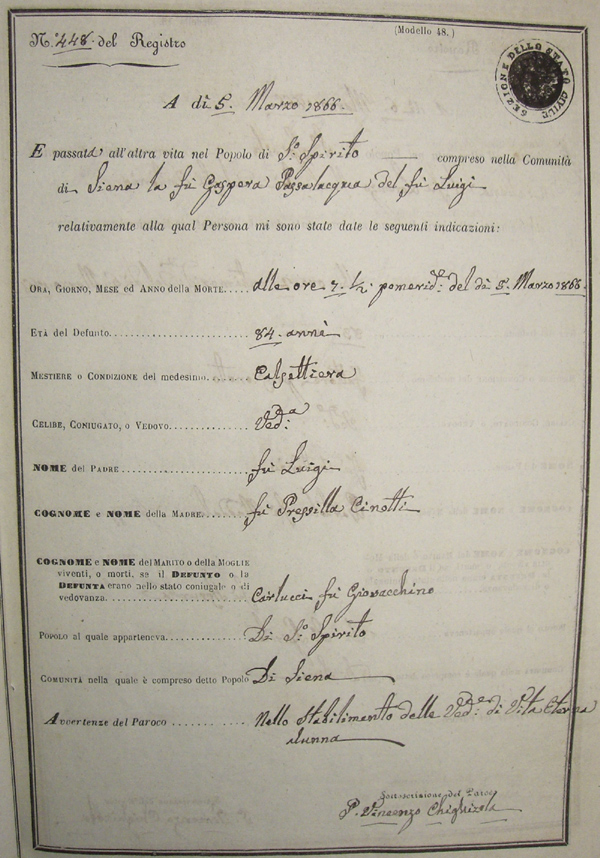 N.º 448. del Registro
(Modello 48.)
SEZIONE DELLO STATO CIVILE
A dì 5. Marzo 1866.
E passata all'altra vita nel Popolo di S.º Spirito compreso nella Comunità
di Siena la fù Gaspera Passalacqua del fù Luigi
relativamente alla qual Persona mi sono state date le seguenti indicazioni:
ORA, GIORNO, MESE ed ANNO della MORTE..... alle ore 7. 1/2. pomerid.e del dì 5. Marzo 1866.
ETÀ del Defunto........................ 84. anni
MESTIERE o CONDIZIONE del medesimo....... Calzettiera
CELIBE, CONIUGATO, O VEDOVO.............. Ved.a
NOME del PADRE...................... fù Luigi
COGNOME e NOME della MADRE........ fù Pressilla Cinotti
COGNOME e NOME del MARITO o della MOGLIE
viventi, o morti, se il DEFUNTO o la
DEFUNTA erano nello stato coniugale o di
vedovanza........................ Carlucci fù Giovacchino
POPOLO al quale apparteneva............ Di S.º Spirito
COMUNITÀ nella quale è compreso detto Popolo Di Siena
Avvertenze del Paroco ............ Nello Stabilimento delle Ved.e di Vita Eterna
Sottoscrizione del Paroco
P. Vincenzo Chighizola